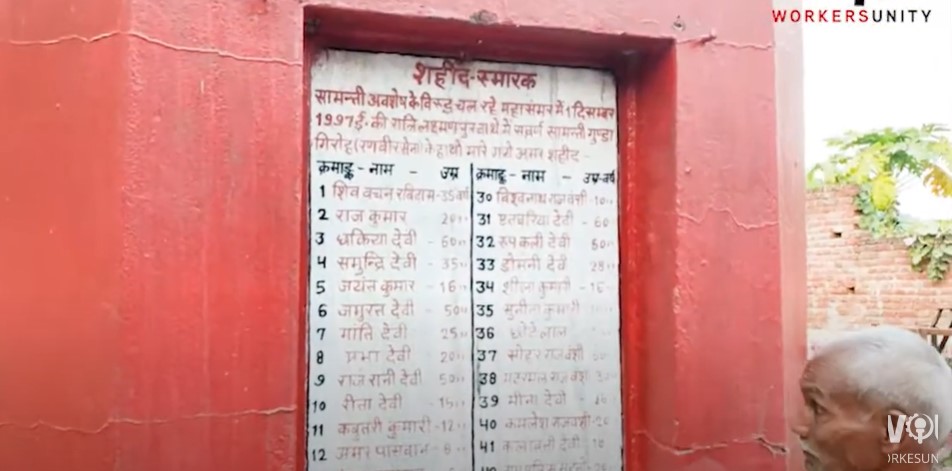 WORKERSUNITY
शहीद-स्मारक
सामन्ती अवशेष के विरुद्ध चल रहे महासमर में 1 दिसम्बर
1997 ई. की रात्रि लक्ष्मणपुर बाथे में सवर्ण सामन्ती गुण्डा
गिरोह (रणवीर सेना) के हाथों मारे गये अमर शहीद -
क्रमाङ्क - नाम - उम्र
1 शिव वचन रविदास-35 वर्ष
2 राज कुमार 20"
3 धकिया देवी - 60"
4 समुन्द्रि देवी - 35"
5 जयंत कुमार - 16"
6 जमुरत देवी - 50"
7 मांति देवी 25"
8 प्रभा देवी 20"
9 राज रानी देवी 50"
10 रीता देवी - 15"
11 कबुतरी कुमारी - 12"
12 अमर पासवान - 8"
क्रमाङ्क - नाम - उम्र-वर्ष
30 विश्वनाथ राजवंशी - 10"
31 एतवरिया देवी - 60
32 रूपकली देवी 60"
33 डोमनी देवी 28"
34 शीला कुमारी - 16"
35 सुनीता कुमारी
36 छोटेलाल
37 राजवंशी
38 राजवंशी
39 मीना देवी
40 कमलेश राजवंशी
41 कलावती देवी
ORKESUN